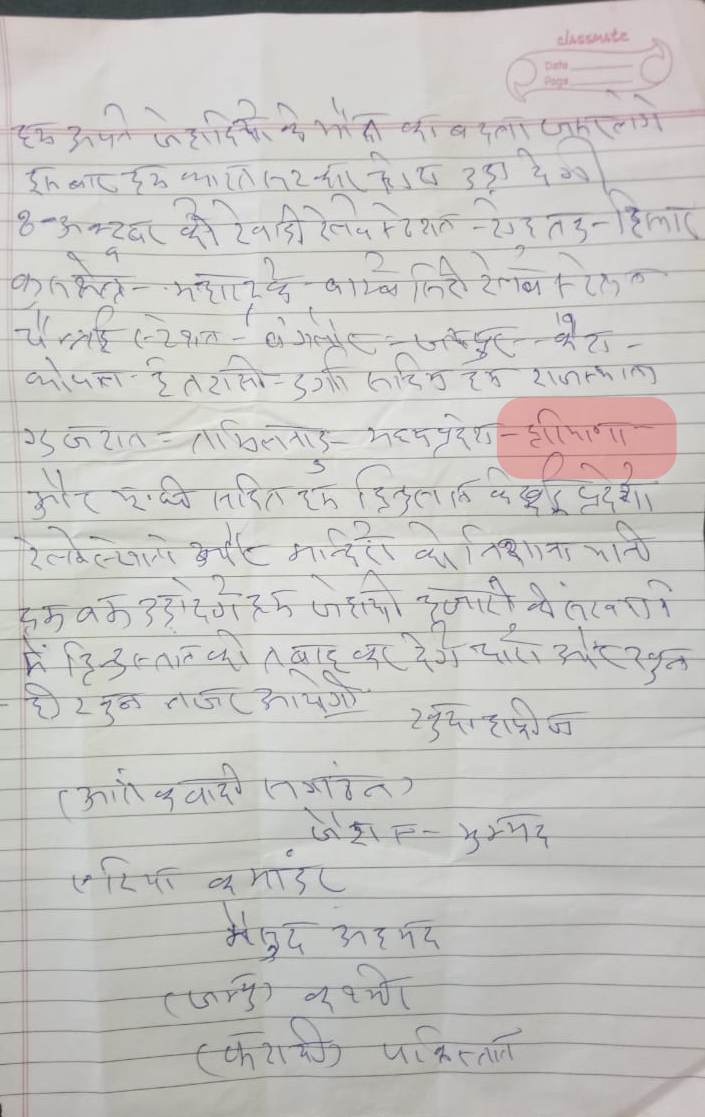 classmate
Date
Page
हम अपने जेहादियो के मौत का बदला जरूर लेगे
इस बार हम भारत सरकार उड़ा देगे
8-अक्टूबर को रेवाड़ी रेलवे स्टेशन - रोहतक - हिसार
कुरुक्षेत्र - बाम्बे सिटी रेलवे स्टेशन
चैन्नई स्टेशन - बंगलौर - जयपुर -
भोपाल - इतरासी - सहित हम राजस्थान
गुजरात - तामिलनाडु - मध्दप्रदेश - हरियाणा -
और यू.पी सहित हम हिन्दुस्तान के कई प्रदेशो
रेलवे स्टेशनो और मन्दिरो को निशाना
हम बम उड़ा देगे हम जेहादी हजारो की संख्या
में हिन्दुस्तान को तबाह कर देगे चारो ओर खुन
ही खुन नजर आयेगा
खुदा हाफीज
(आतंकवादी संगठन)
जैश - मुम्मद
एरिया कमांडर
अहमद
(जम्मु) कश्मीर
(कराची) पाकिस्तान